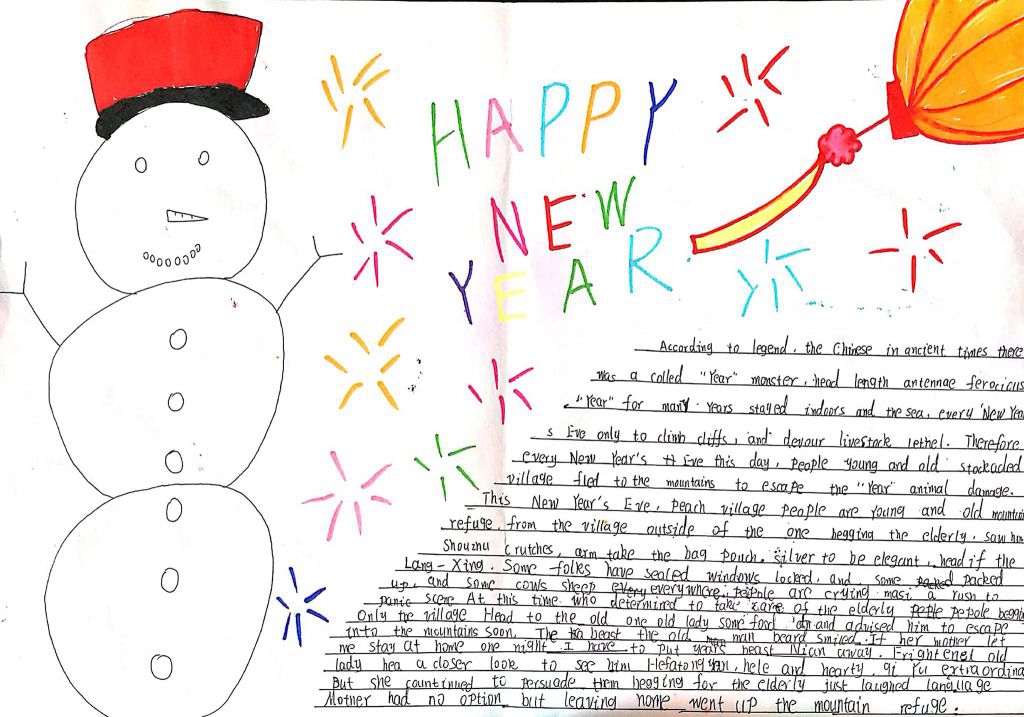 HAPPY
NEW
YEAR
According to legend, the Chinese in ancient times there
was a colled "Year" monster, head length antennae ferocious
"Year" for many years stayed indoors and the sea, every New Yea
s Eve only to climb cliffs, and devour livestock lethel. Therefore
every New Year's Eve this day, people young and old stockaded
village fled to the mountains to escape the "Year" animal damage.
This New Year's Eve, peach village people are young and old mountain
refuge, from the village outside of the one begging the elderly. saw his
Shouzhu crutches, arm take the bag pouch, silver to be elegant, head if the
Lang-Xing. Some folks have sealed windows locked, and some packed
up, and some cows sheep everywhere. people are crying masi a rush to
panic scene At this time who determined to take care of the elderly pepole beggin
Only the village Head to the old one old lady some food and advised him to escape
into the mountains soon. The beast the old man beard smiled. If her mother let
me stay at home one night I have to put years beast Nian away. Frightened old
lady hea a closer look to see him Hefatongyan, hele and hearty, qi yu extraordina
But she countinued to persuade them begging for the elderly just laughed language
Mother had no option but leaving home went up the mountain refuge.